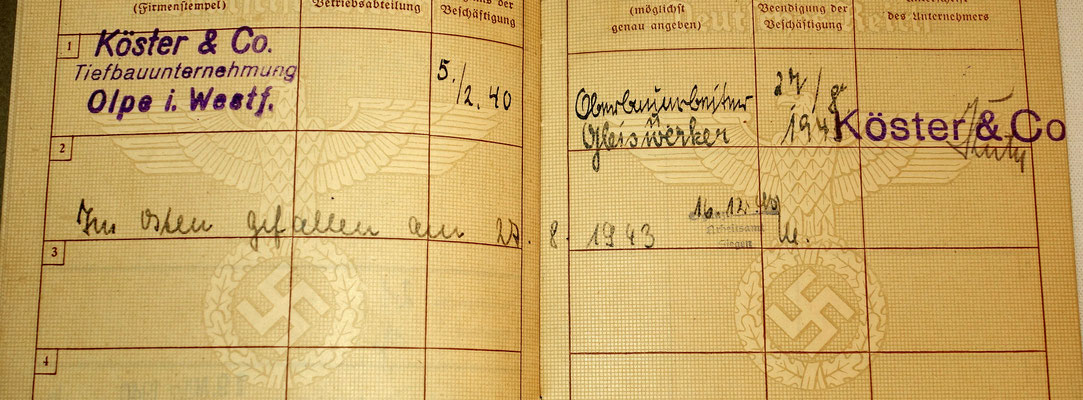 (Firmenstempel)
Betriebsabteilung
der
Beschäftigung
(möglichst
genau angeben)
Beendigung der
Beschäftigung
des Unternehmers
1
Köster & Co.
Tiefbauunternehmung
Olpe i. Westf.
5./2. 40
Oberbauarbeiter
Gleiswerker
27/
Köster & Co
2
Im Osten gefallen am 27. 8. 1943
16.12.40
Arbeitsamt
Siegen
3
4